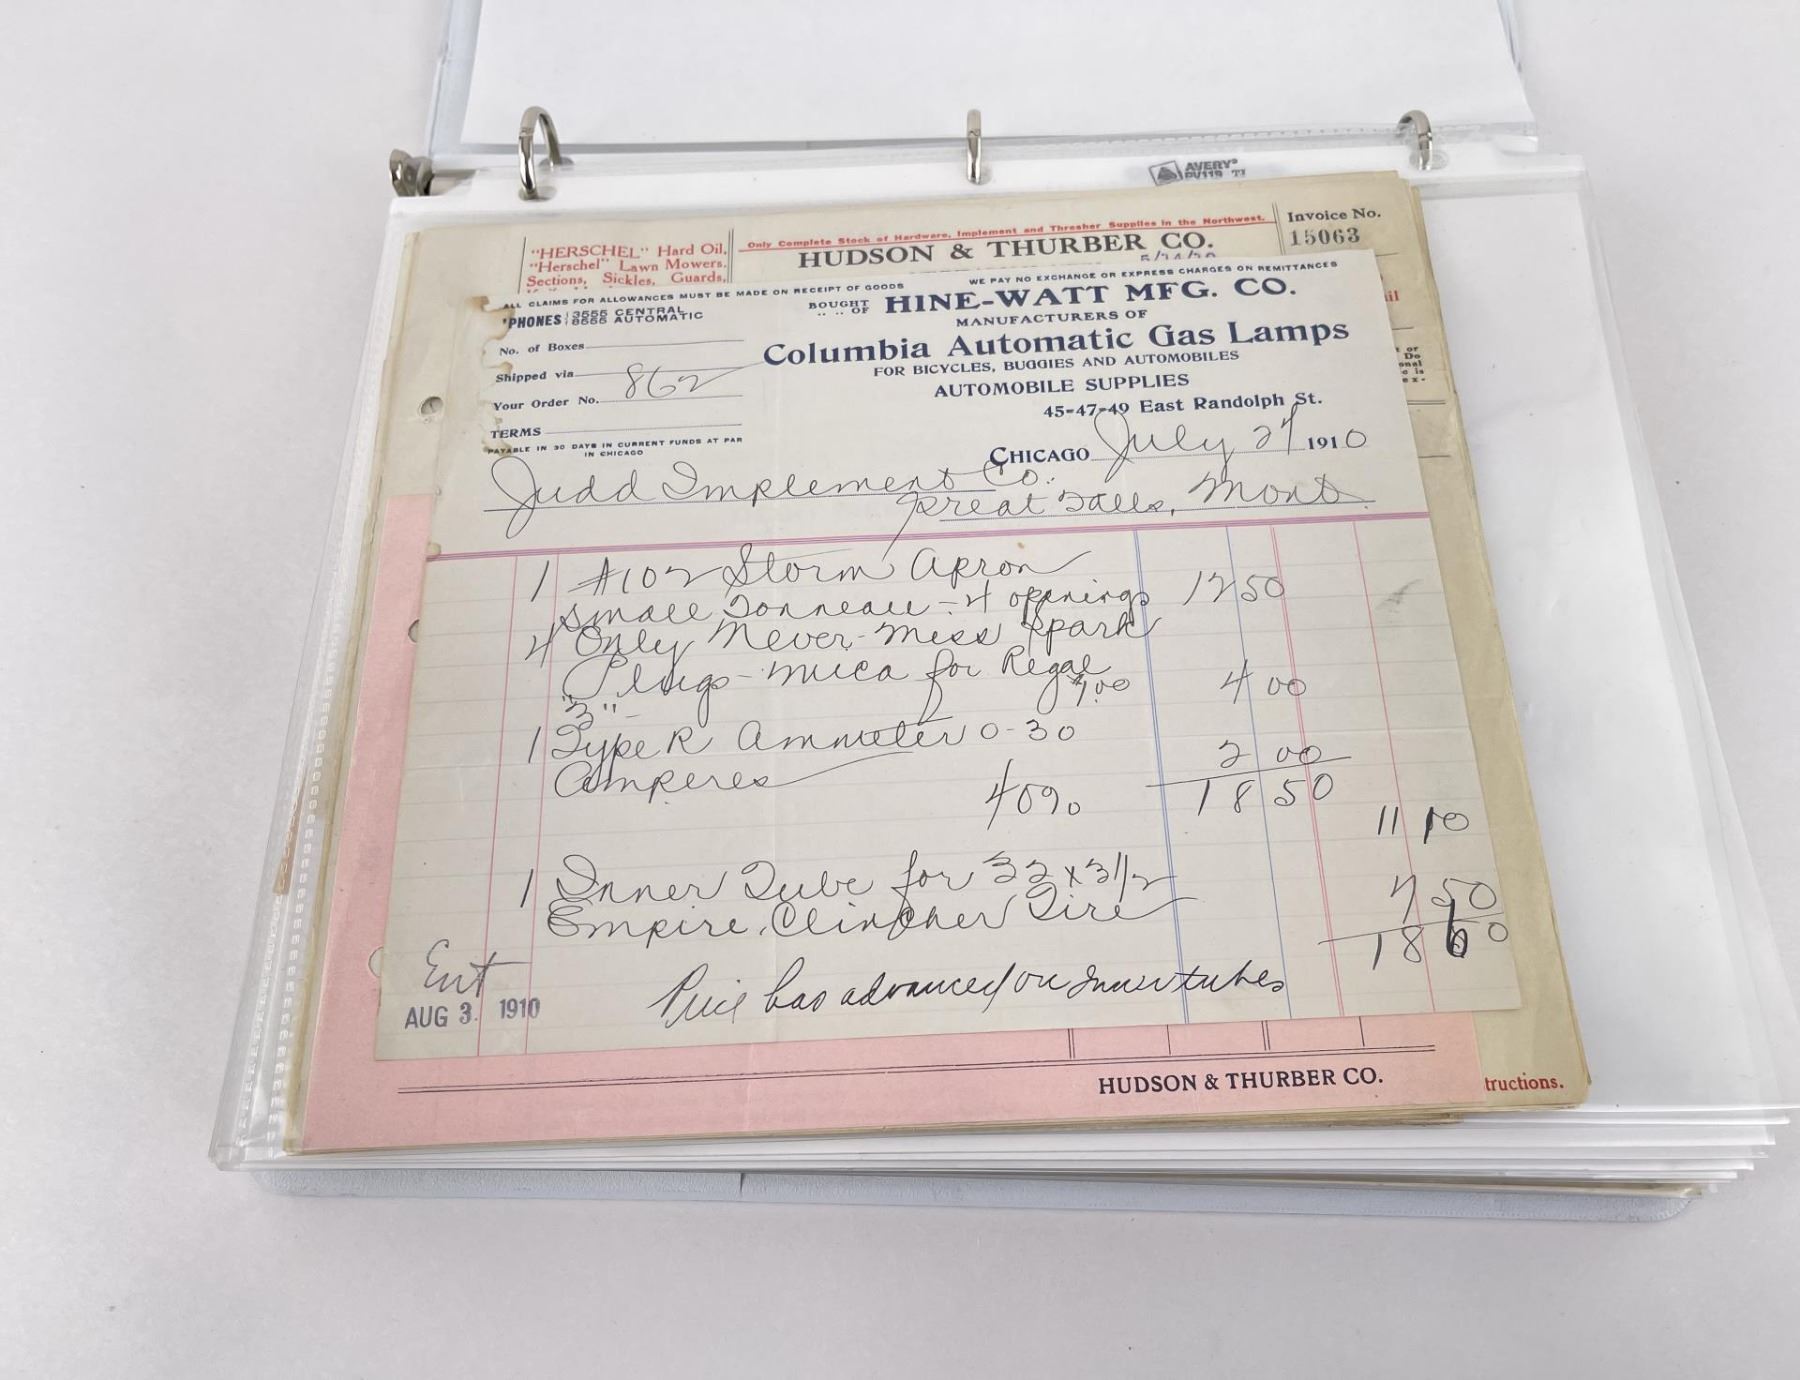 AVERY
PV119
"HERSCHEL" Hard Oil,
"Herschel" Lawn Mowers,
Sections, Sickles, Guards,
Only Complete Stock of Hardware, Implement and Thresher Supplies in the Northwest.
HUDSON & THURBER CO.
Invoice No.
15063
ALL CLAIMS FOR ALLOWANCES MUST BE MADE ON RECEIPT OF GOODS
WE PAY NO EXCHANGE OR EXPRESS CHARGES ON REMITTANCES
'PHONES 3555 CENTRAL
8555 AUTOMATIC
No. of Boxes
Shipped via
Your Order No. 862
TERMS
PAYABLE IN 30 DAYS IN CURRENT FUNDS AT PAR
IN CHICAGO
BOUGHT OF HINE-WATT MFG. CO.
MANUFACTURERS OF
Columbia Automatic Gas Lamps
FOR BICYCLES, BUGGIES AND AUTOMOBILES
AUTOMOBILE SUPPLIES
45-47-49 East Randolph St.
CHICAGO July 27 1910
Judd Implement Co.
Great Falls, Mont.
1 #102 Storm Apron
small Tonneau - 4 openings 12 50
4 Only Never-Miss Spark
Plugs - mica for Regal
"3" - 1.00 4 00
1 Type R Ammeter 0-30
Amperes 2 00
40% 18 50
11 10
1 Inner Tube for 32 x 3 1/2
Empire Clincher Tire 7 50
18 60
Ent
AUG 3. 1910
Price has advanced on Inner tubes
HUDSON & THURBER CO.
tructions.